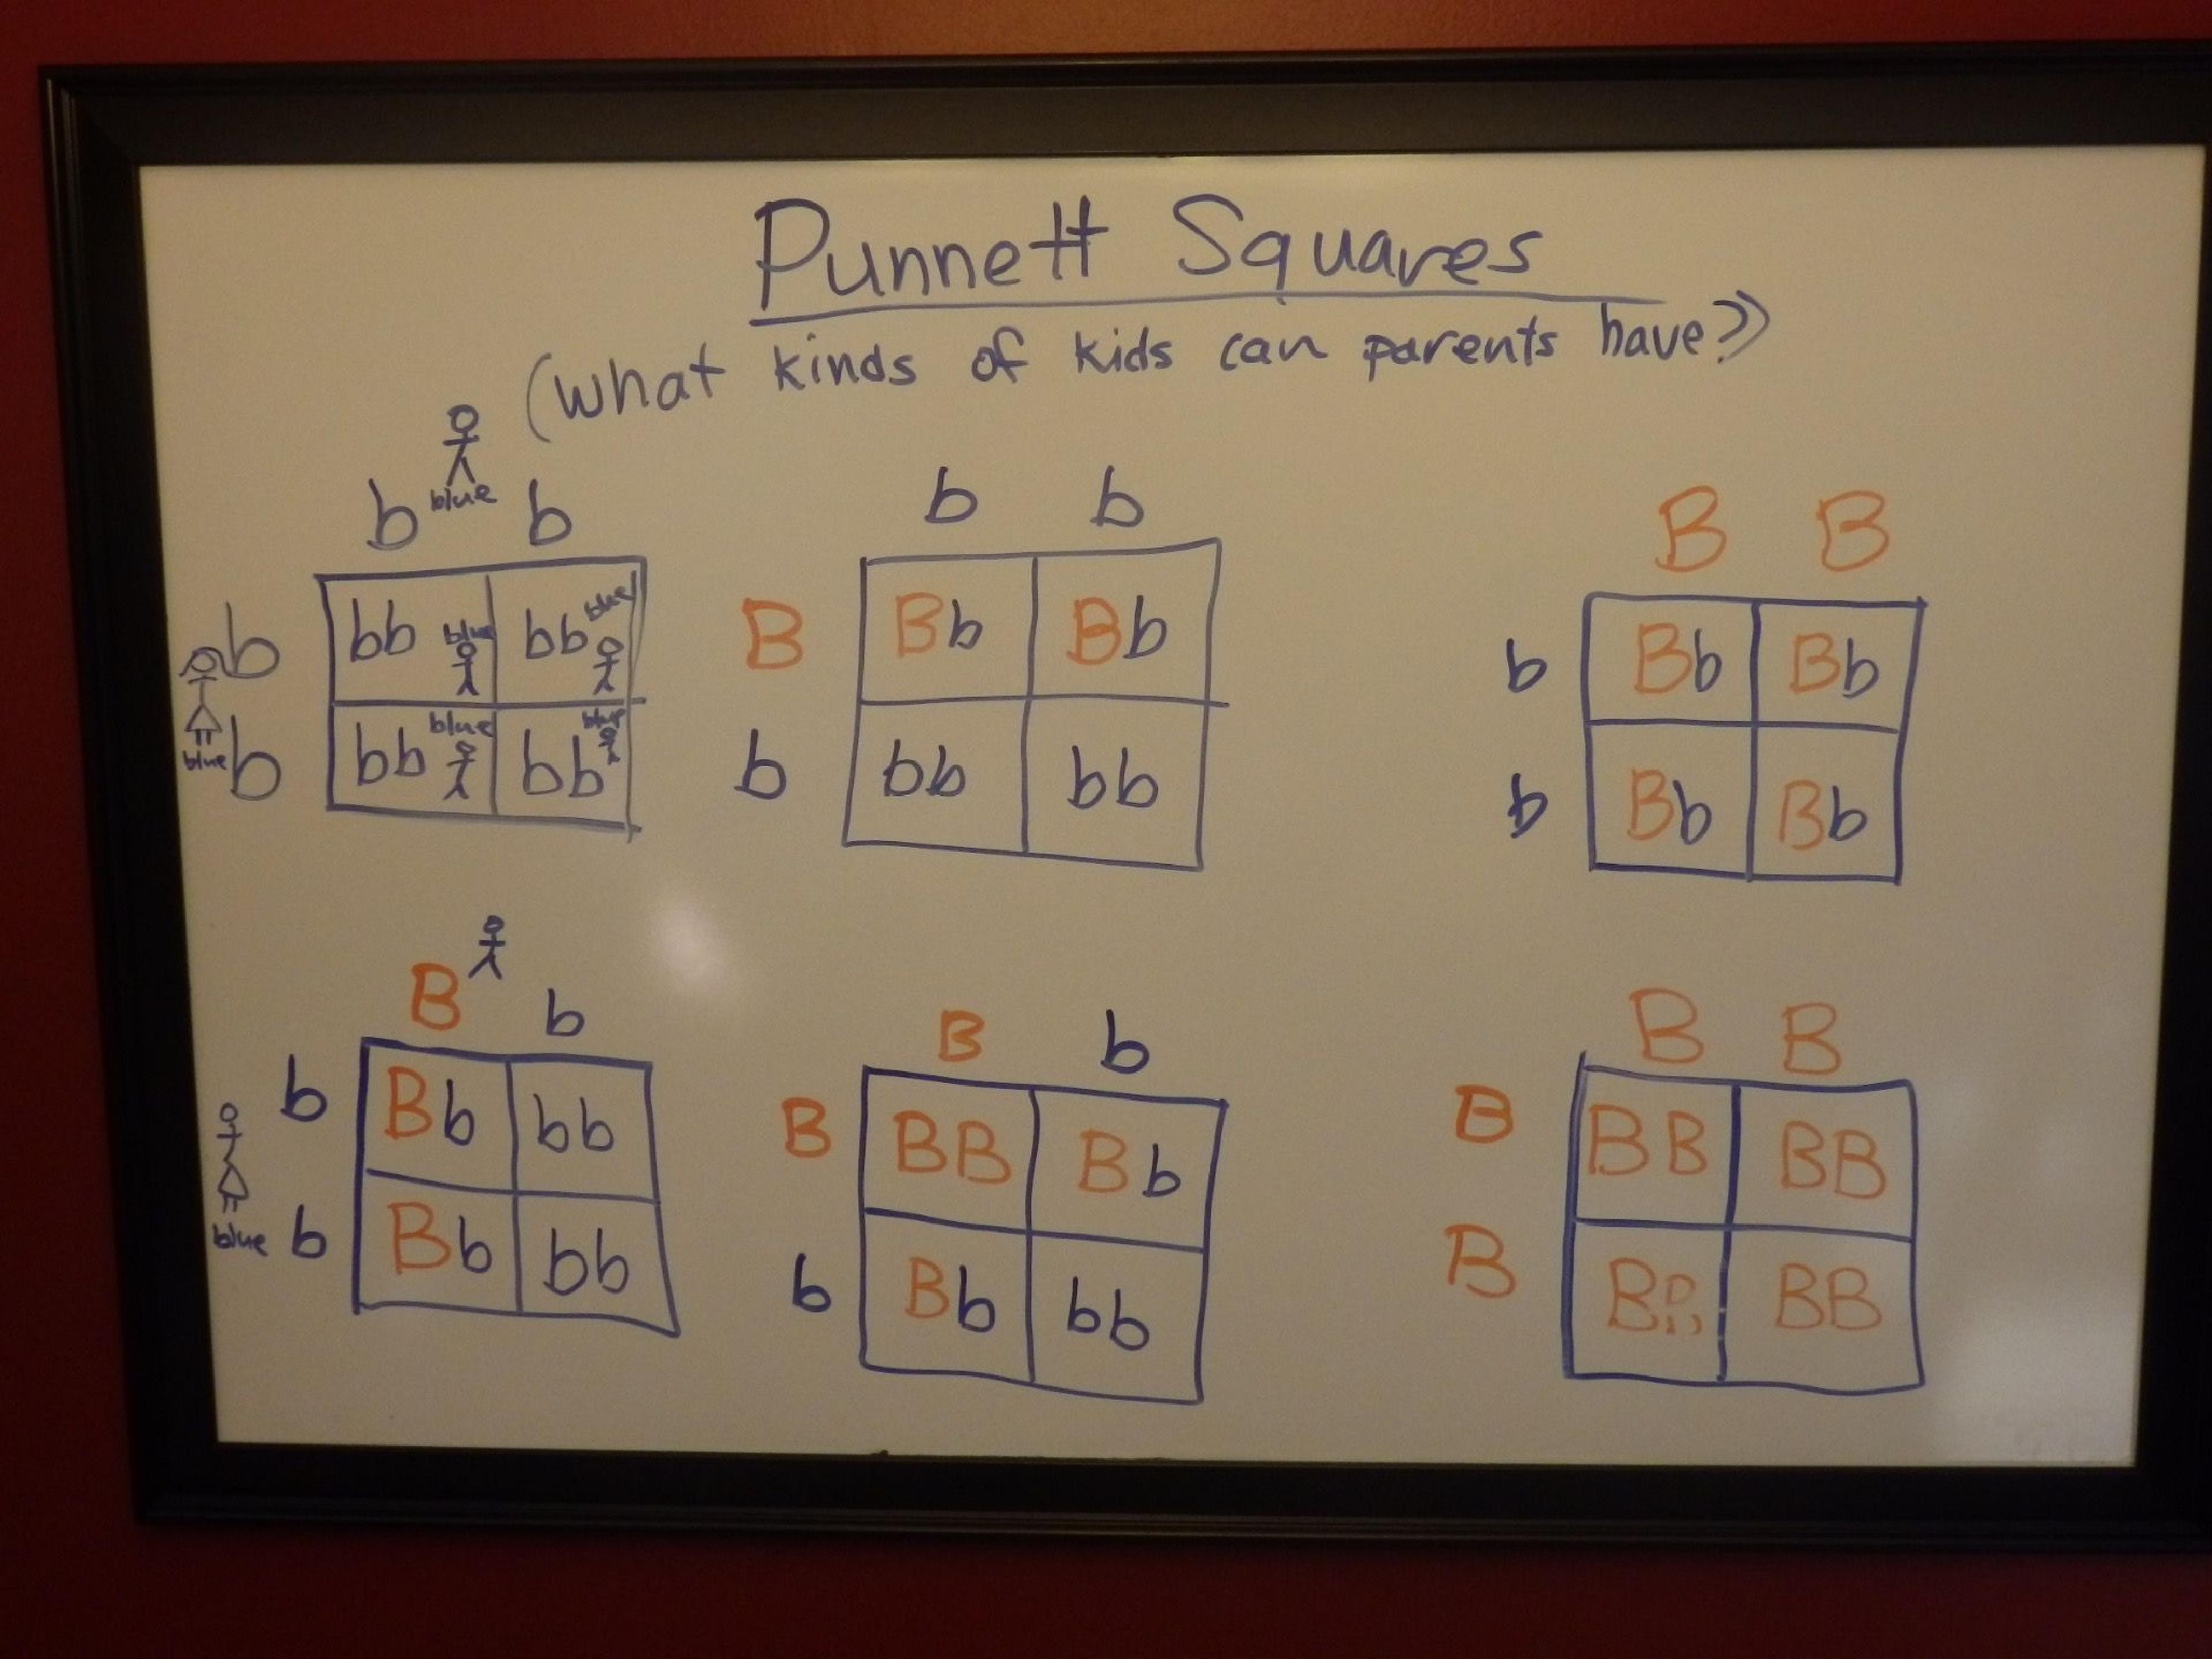 Punnett Squares
(what kinds of kids can parents have?)
blue
b b
b bb blue bb blue
blue
b bb blue bb blue
b b
B Bb Bb
b bb bb
B B
b Bb Bb
b Bb Bb
B b
b Bb bb
blue
b Bb bb
B b
B BB Bb
b Bb bb
B B
B BB BB
B BB BB